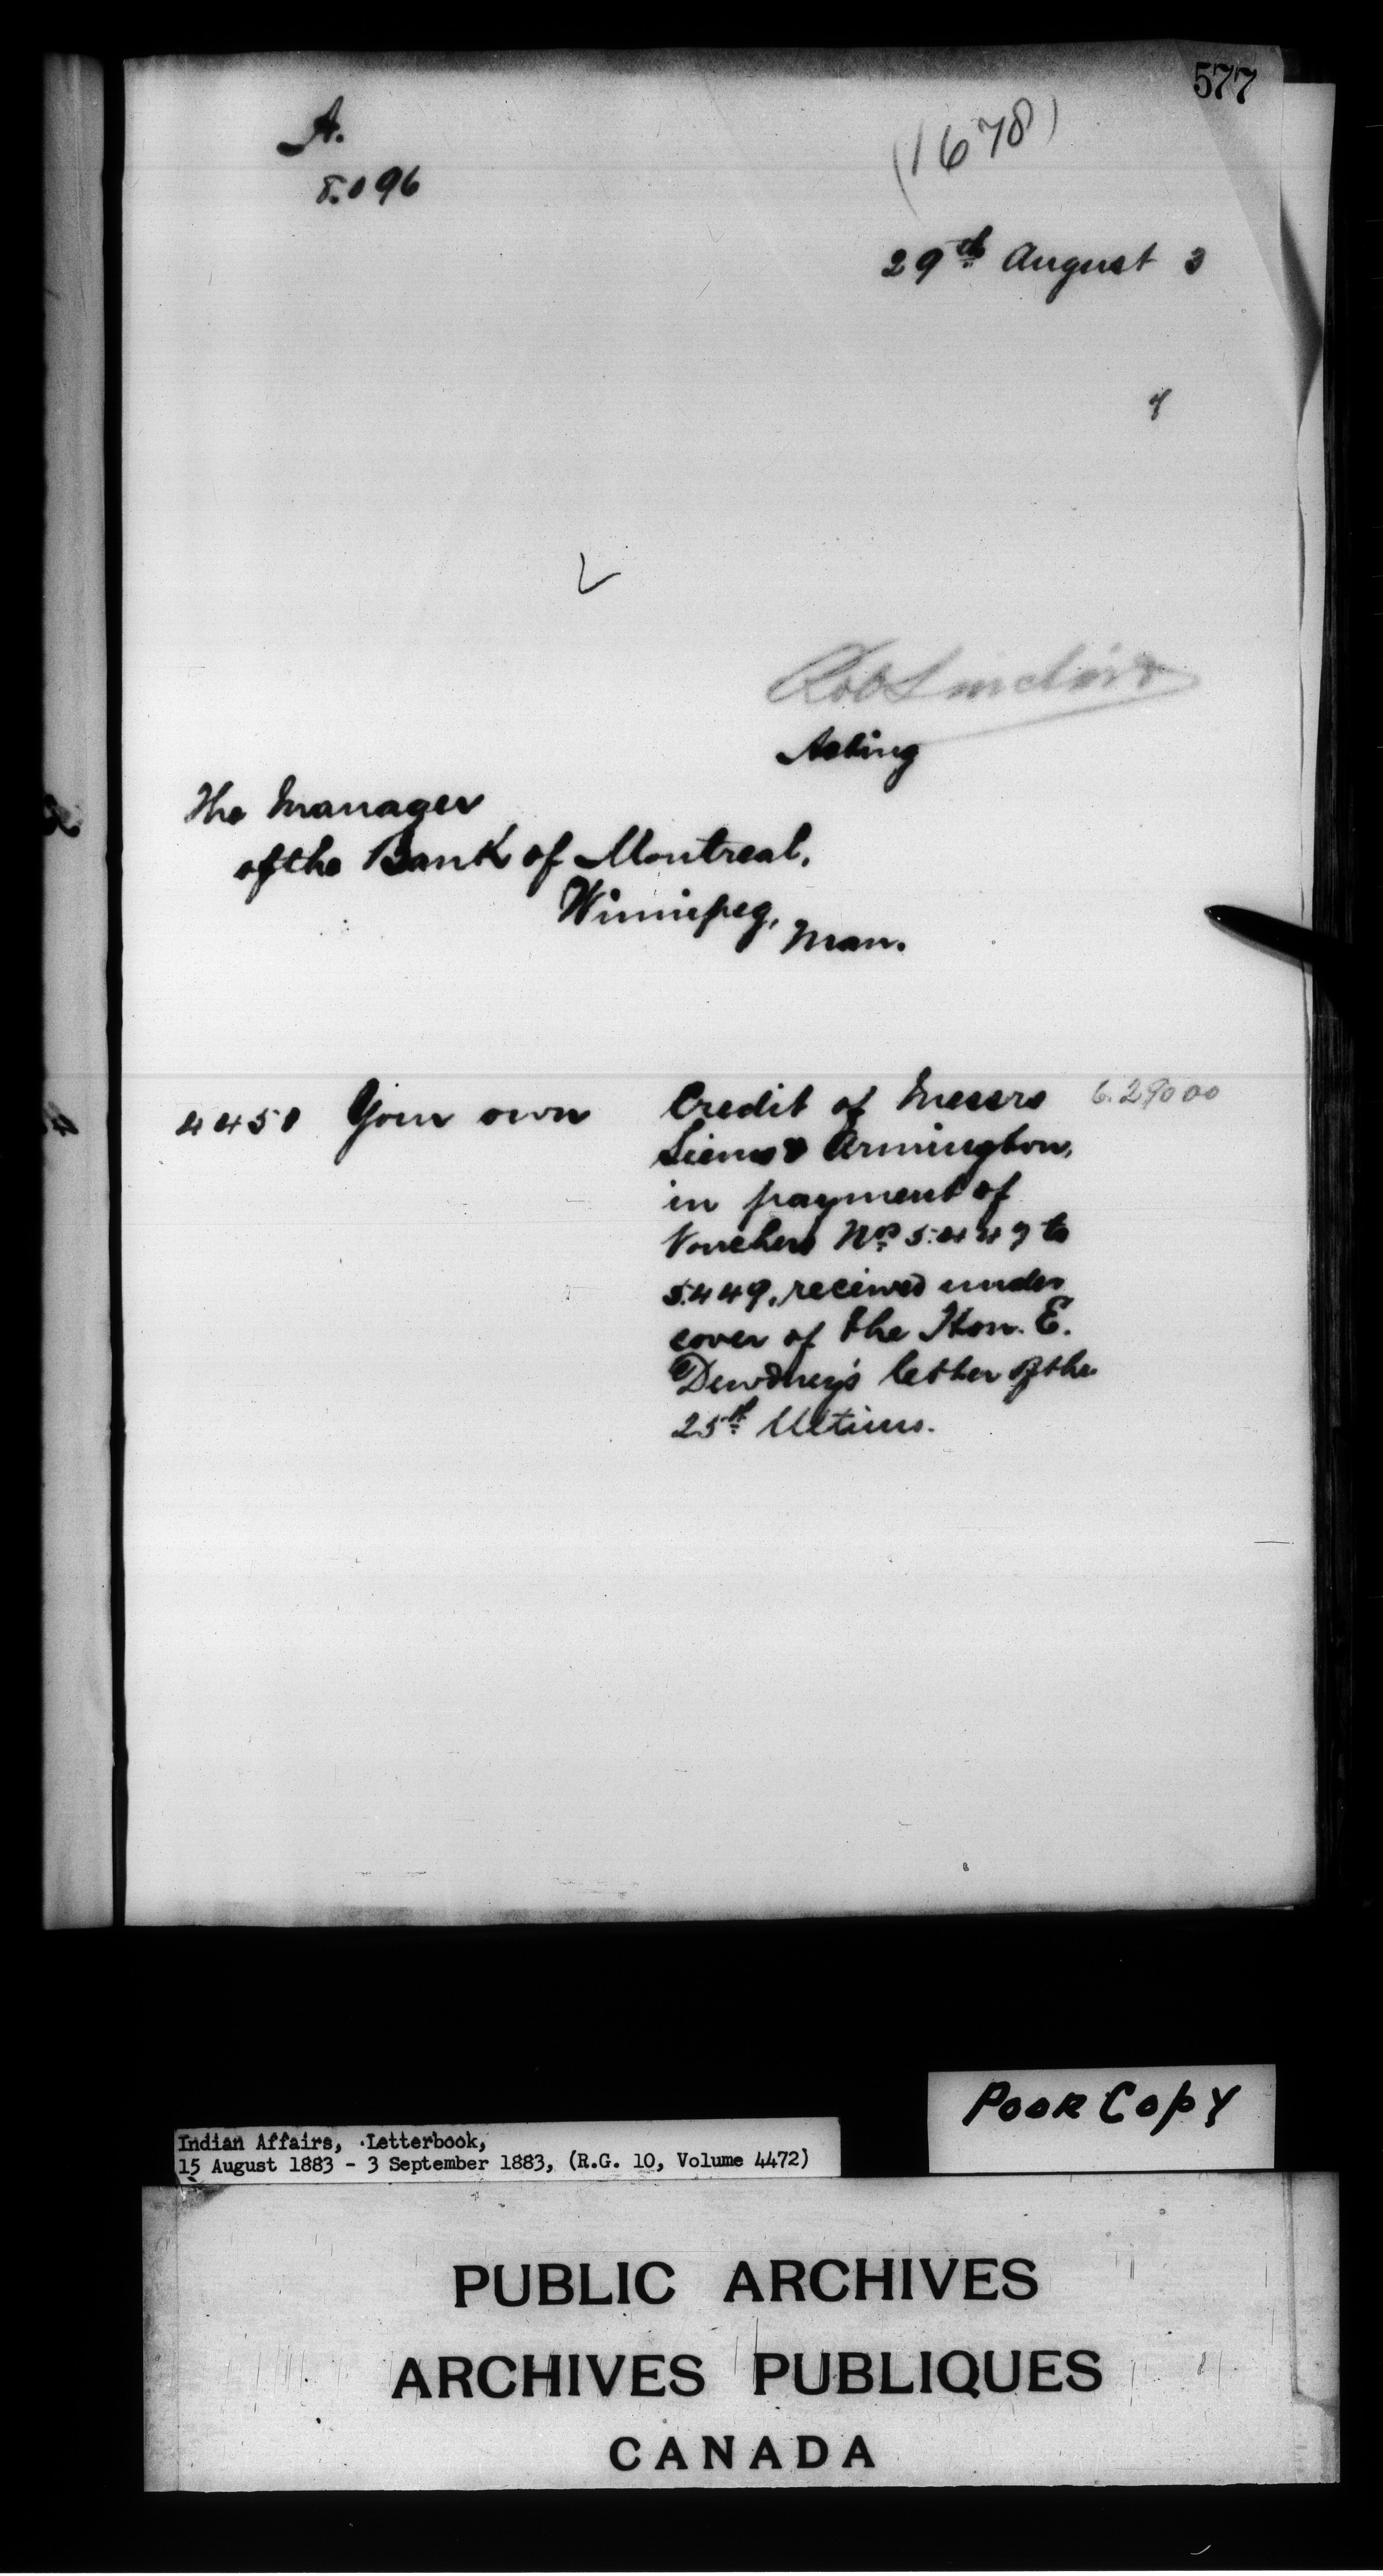 577
A.
(1678)
8.096
29th August 3
Rob Sinclair
Acting
The Manager
of the Bank of Montreal,
Winnipeg,
Man.
4450 Your own
Credit of Messrs 6.290 00
& Armington,
in payment of
Vouchers Nos 5.447 to
5.449, received under
cover of the Hon. E.
Dewdney's letter of the
25th Ultimo.
Poor Copy
Indian Affairs, Letterbook,
15 August 1883 - 3 September 1883, (R.G. 10, Volume 4472)
PUBLIC ARCHIVES
ARCHIVES PUBLIQUES
CANADA